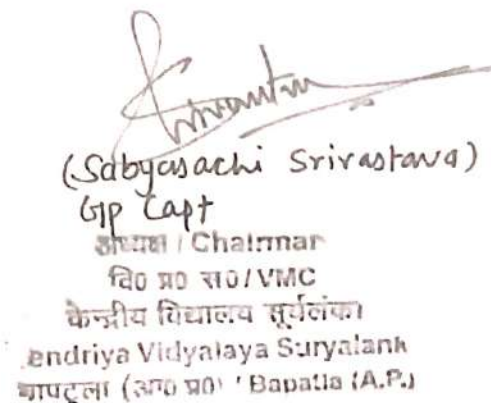 (Sabyasachi Srivastava)
Gp Capt
अध्यक्ष / Chairman
वि० प्र० स० / VMC
केन्द्रीय विद्यालय सूर्यलंका
endriya Vidyalaya Suryalank
बापटला (आ० प्र०) / Bapatla (A.P.)